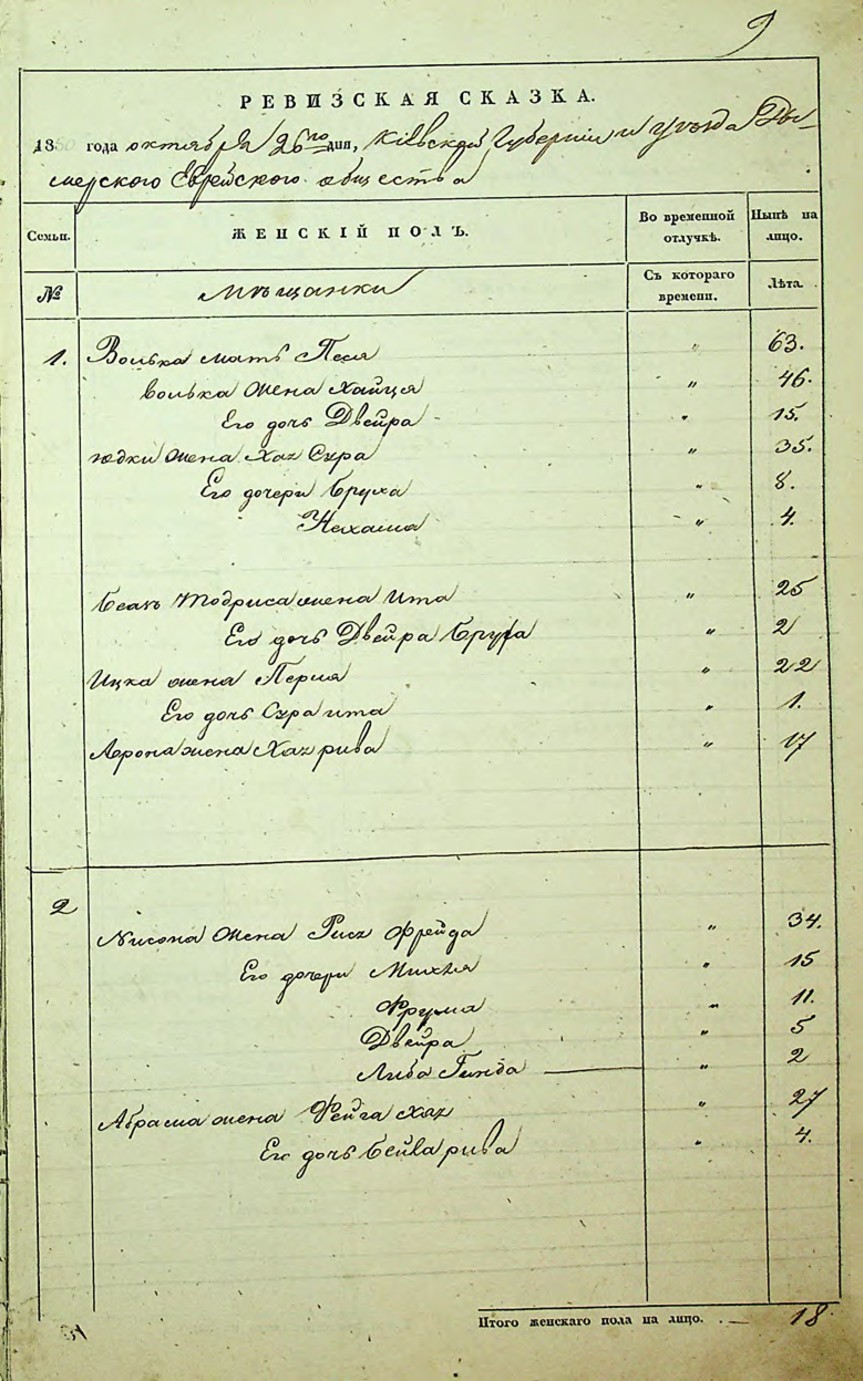 9
РЕВИЗСКАЯ СКАЗКА.
1850 года октября 26го дня, Кіевской Губерніи и уѣзда Ды-
мерского Еврейского общества
Семьи. ЖЕНСКІЙ ПОЛЪ. Во временной отлучкѣ. Нынѣ на лицо.
№ Мѣщанки Съ котораго времени. Лѣта.
1. Волька мать Песя " 63.
Волька жена Хайця " 46.
Его дочь Двейра " 15.
Юдки жена Хая Сура " 35.
Его дочери Бруха " 8.
Нехама " 4.
Тодриса жена Ита " 25
Его дочь Двейра Бруха " 2
Ицка жена Перля " 22
Его дочь Сура Ита " 1.
Арона жена Хая рива " 17
2 Нисона жена Рися Фрейда " 34.
Его дочери Михля " 15
Фрума " 11.
Двейра " 5
Либа Гинда " 2
Абрама жена Фейга хая " 27
Его дочь Бейла рива " 4.
Итого женскаго пола на лицо. 18